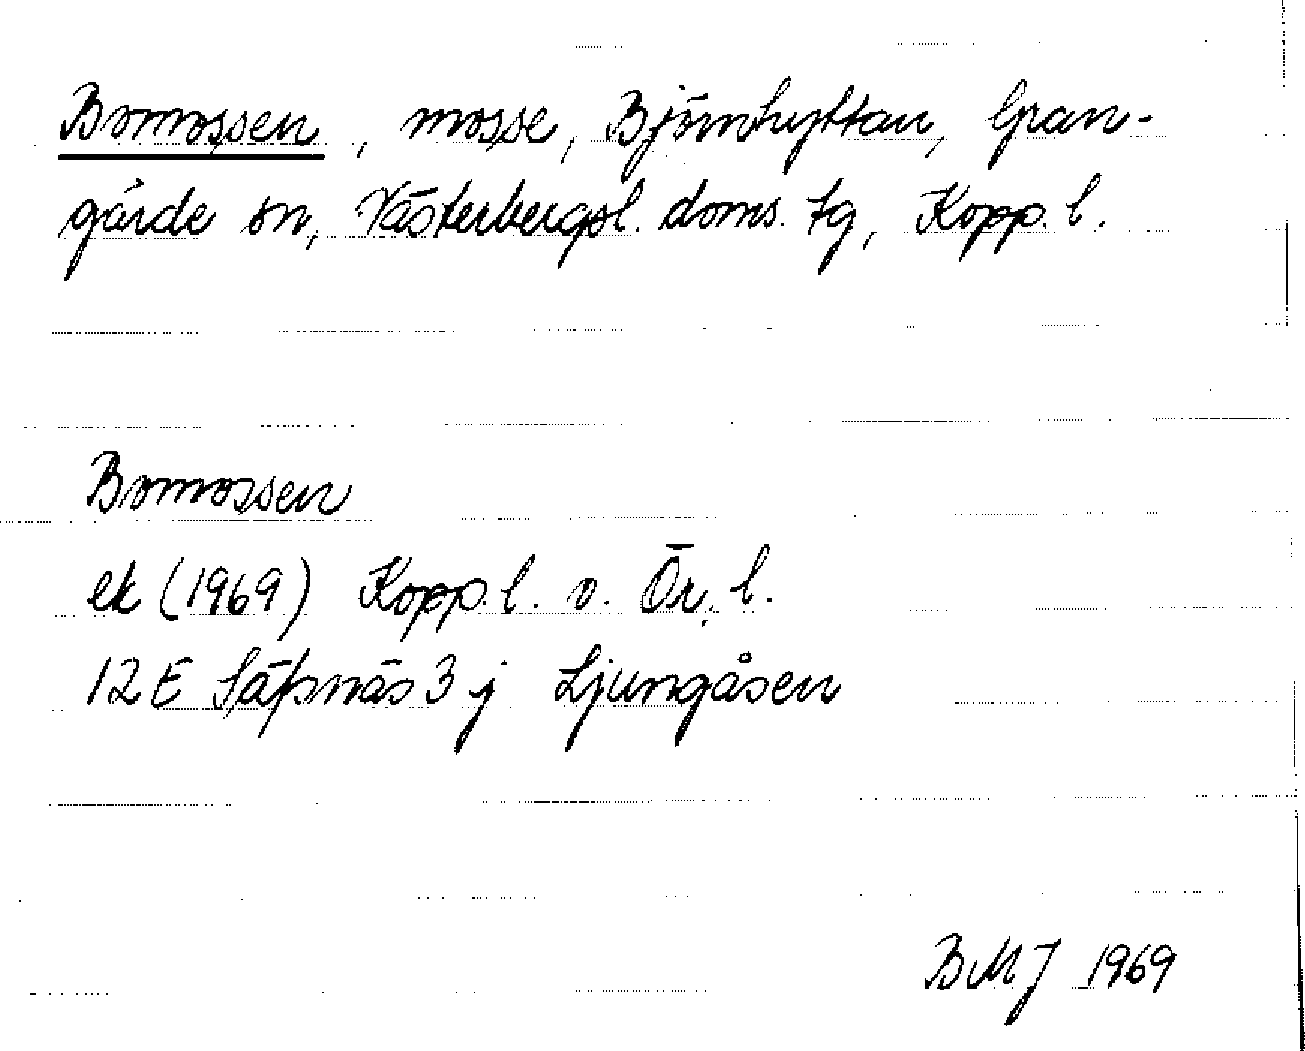 Bomossen, mosse, Björnhyttan, Gran-
gärde sn, Västerbergsl. doms. tg, Kopp. l.
Bomossen
ek (1969) Kopp. l. o. Ör. l.
12E Säfsnäs 3j Ljungåsen
BMJ 1969